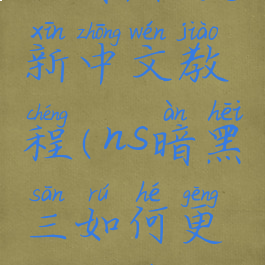 xīn zhōng wén jiào
新中文教
chéng àn hēi
程(ns暗黑
sān rú hé gēng
三如何更